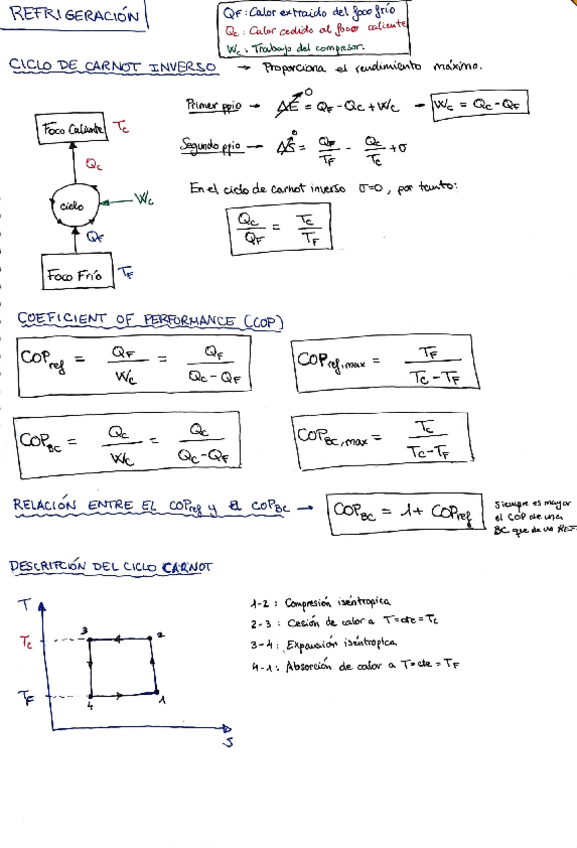 REFRIGERACIÓN
QF: Calor extraido del foco frío
Qc: Calor cedido al foco caliente
Wc: Trabajo del compresor.
CICLO DE CARNOT INVERSO → Proporciona el rendimiento máximo.
Primer ppio → ΔE = QF - Qc + Wc → Wc = Qc - QF
0
Segundo ppio → ΔS = QF/TF - Qc/Tc + σ
0
En el ciclo de carnot inverso σ=0, por tanto:
Qc/QF = Tc/TF
Foco Caliente Tc
Qc
ciclo Wc
QF
Foco Frío TF
COEFICIENT OF PERFORMANCE (COP)
COPref = QF/Wc = QF/(Qc - QF)
COPref,max = TF/(Tc - TF)
COPBC = Qc/Wc = Qc/(Qc - QF)
COPBC,max = Tc/(Tc - TF)
RELACIÓN ENTRE EL COPref y el COPBC → COPBC = 1 + COPref
Siempre es mayor
el COP de una
BC que de un REF
DESCRIPCIÓN DEL CICLO CARNOT
T
Tc 3 2
TF 4 1
S
1-2: Compresión iséntropica
2-3: Cesión de calor a T=cte=Tc
3-4: Expansión iséntropica
4-1: Absorción de calor a T=cte=TF